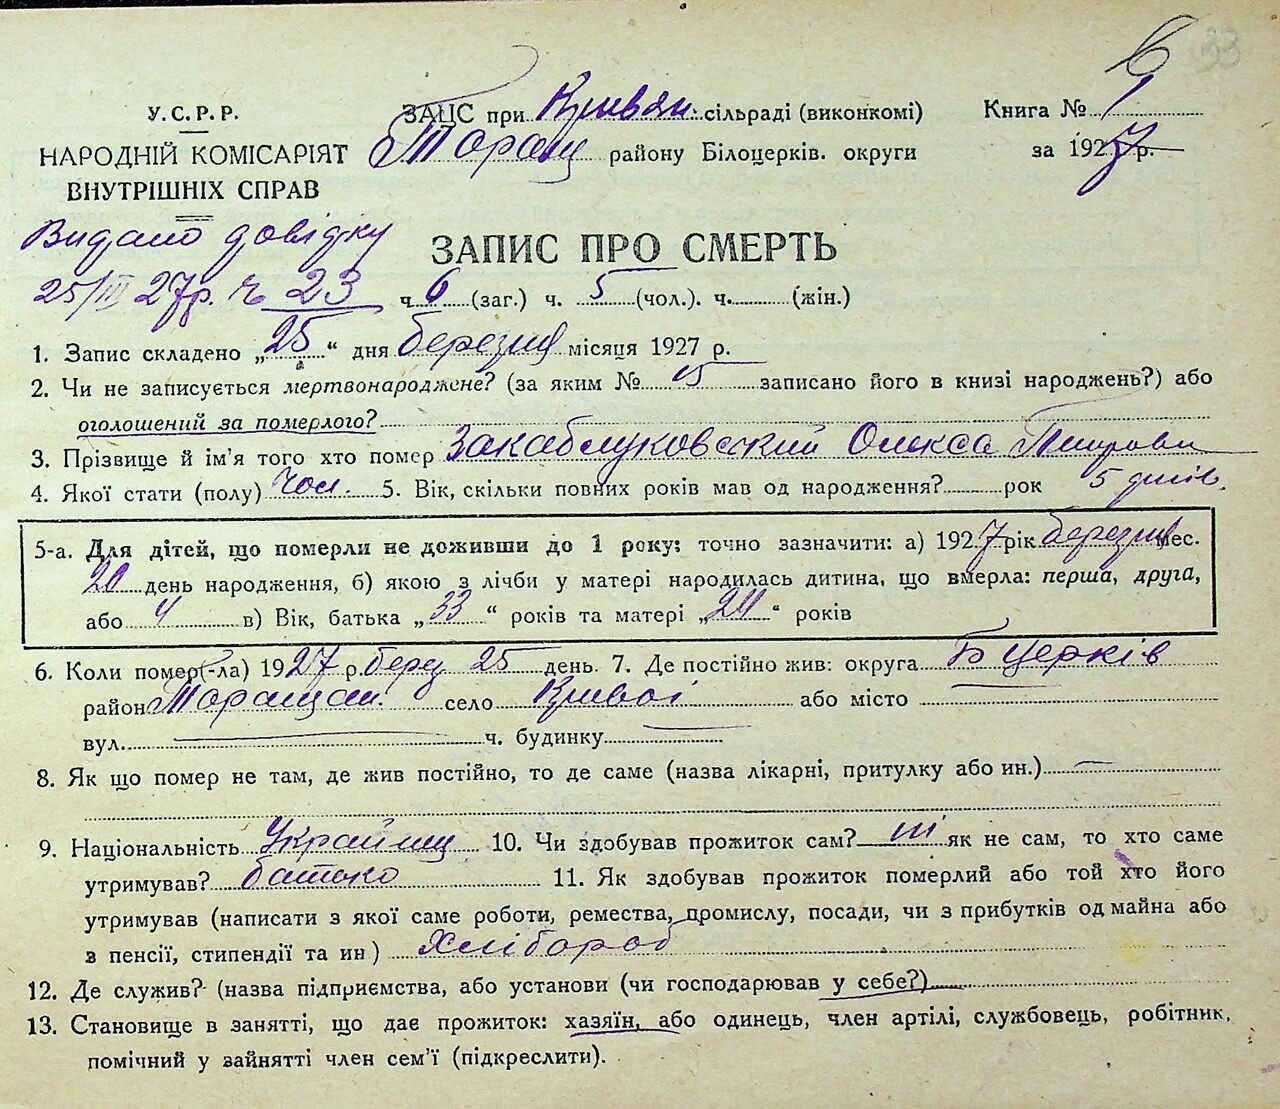 33
6
У.С.Р.Р.
НАРОДНІЙ КОМІСАРІЯТ
ВНУТРІШНІХ СПРАВ
ЗАЦС при Кривян. сільраді (виконкомі)
Таращ району Білоцерків. округи
Книга № 1
за 1927 р.
Видано довідку
25/III 27р. № 23
ЗАПИС ПРО СМЕРТЬ
ч. 6 (заг.) ч. 5 (чол.). ч. (жін.)
1. Запис складено „25“ дня березня місяця 1927 р.
2. Чи не записується мертвонароджене? (за яким № 15 записано його в книзі народжень?) або
оголошений за померлого?
3. Прізвище й ім'я того хто помер Закаблуковський Олекса Петрови
4. Якої стати (полу) Чол. 5. Вік, скільки повних років мав од народження? рок 5 днів.
5-а. Для дітей, що померли не доживши до 1 року: точно зазначити: а) 1927 рік березня мес.
20 день народження, б) якою з лічби у матері народилась дитина, що вмерла: перша, друга,
або 4 в) Вік, батька „33“ років та матері „24“ років
6. Коли помер(-ла) 1927 р. берез 25 день. 7. Де постійно жив: округа Б Церків
район Таращан. село Кривої або місто
вул. ч. будинку
8. Як що помер не там, де жив постійно, то де саме (назва лікарні, притулку або ин.)
9. Національність Українец 10. Чи здобував прожиток сам? ні як не сам, то хто саме
утримував? батько 11. Як здобував прожиток померлий або той хто його
утримував (написати з якої саме роботи, ремества, промислу, посади, чи з прибутків од майна або
з пенсії, стипендії та ин) Хлібороб
12. Де служив? (назва підприємства, або установи (чи господарював у себе?)
13. Становище в занятті, що дає прожиток: хазяїн, або одинець, член артілі, службовець, робітник,
помічний у зайнятті член сем'ї (підкреслити).